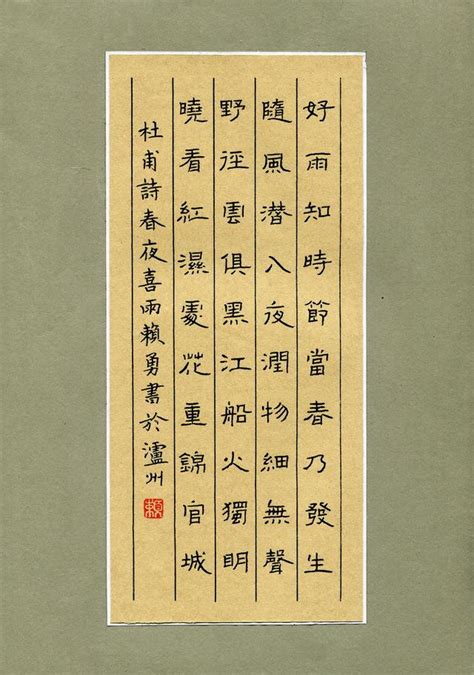 好雨知時節當春乃發生
隨風潛入夜潤物細無聲
野徑雲俱黑江船火獨明
曉看紅濕處花重錦官城
杜甫詩春夜喜雨賴勇書於瀘州
賴